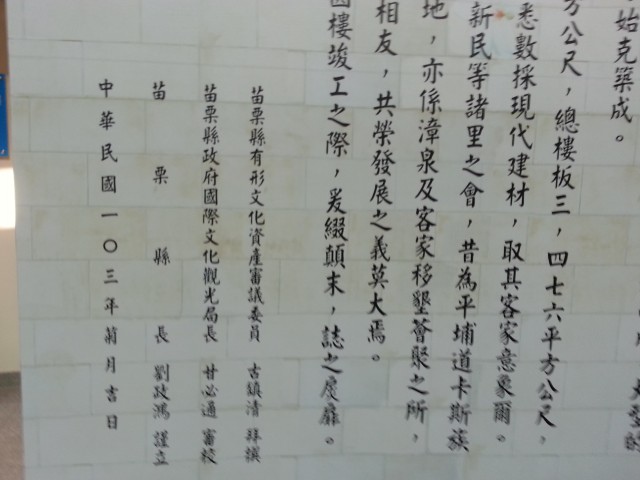 始克築成。
方公尺，總樓板三，四七六平方公尺，
悉數採現代建材，取其客家意象爾。
新民等諸里之會，昔為平埔道卡斯族
地，亦係漳泉及客家移墾薈聚之所，
相友，共榮發展之義莫大焉。
樓竣工之際，爰綴顛末，誌之扆屏。
苗栗縣有形文化資產審議委員 古鎮清 拜撰
苗栗縣政府國際文化觀光局長 甘必通 審校
苗栗縣長 劉政鴻 謹立
中華民國一〇三年菊月吉日